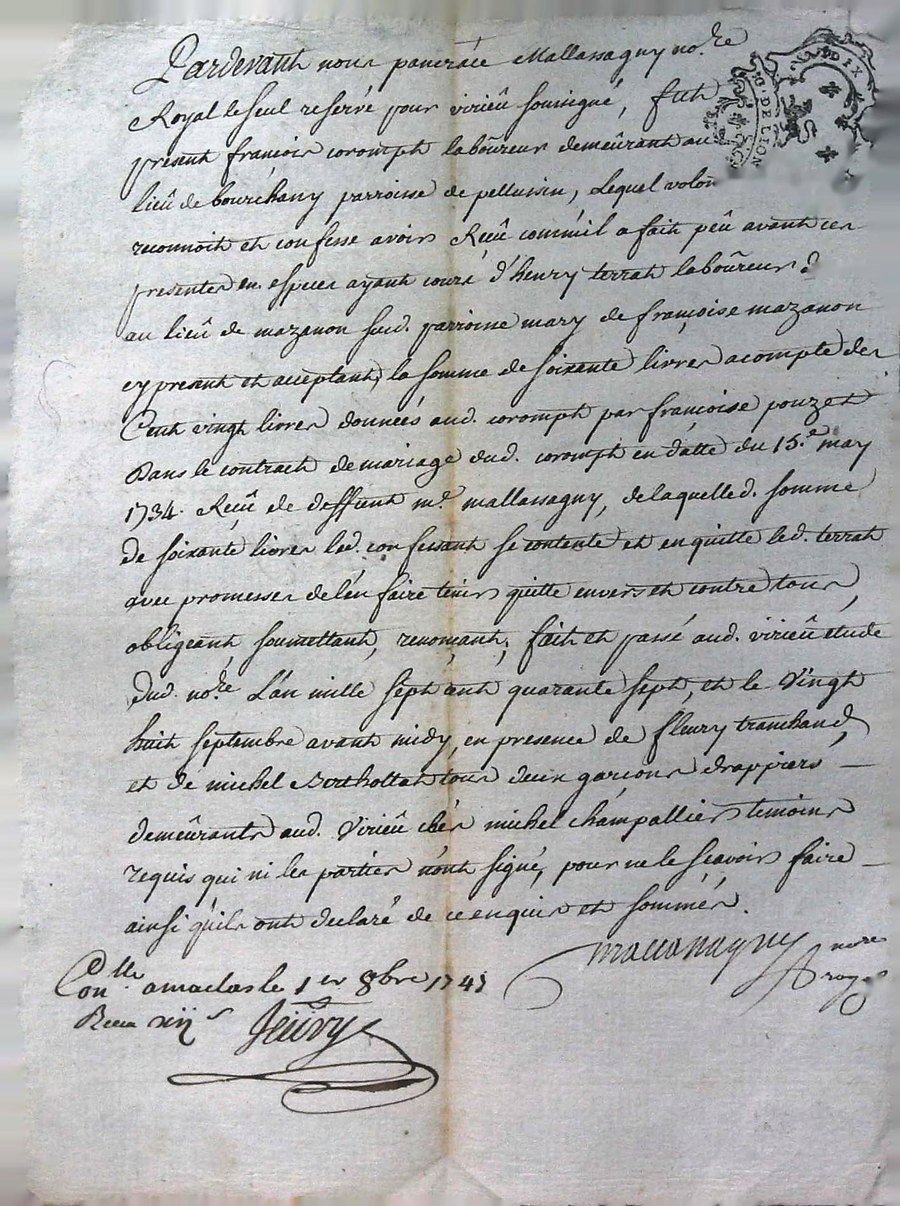 Pardevant nous pancrace Mallassagny no.re
Royal le seul reservé pour virieû soussigné, fut
present francois corompt laboûreur demeûrant au
lieû de bourchany parroisse de pellussin, Lequel volon
reconnoit et confesse avoir Reçû comme il a fait peû avant ces
presentes en especes ayant cours d'henry terrat laboûreur d
au lieû de mazanon sud. parroisse mary de françoise mazanon
cy present et acceptant, la somme de soixente livres acompte des
Cent vingt livres données aud. corompt par françoise pouzet
Dans le contract de mariage dud. corompt en datte du 15.e may
1734. Reçû de deffunt m.e mallassagny, de laquelle d. somme
de soixante livres led. confessant se contente et en quitte led. terrat
avec promesses de l'en faire tenir quitte envers et contre tous,
obligeant, soumettant, renonçant, fait et passé aud. virieû etude
dud. no.re L'an mille sept cent quarante sept, et le vingt
huit septembre avant midy, en presence de fleury tranchand,
et de michel Berthollat tous deux garçons drappiers
demeûrants aud. virieû chés michel champallier temoins
requis qui ni les parties n'ont signé, pour ne le sçavoir faire
ainsi qu'ils ont declaré de ce enquis et sommés.
mallassagny no.re
royal
Con.lle a maclas le 1er 8bre 1747
Receu
G. DE LION
DIX